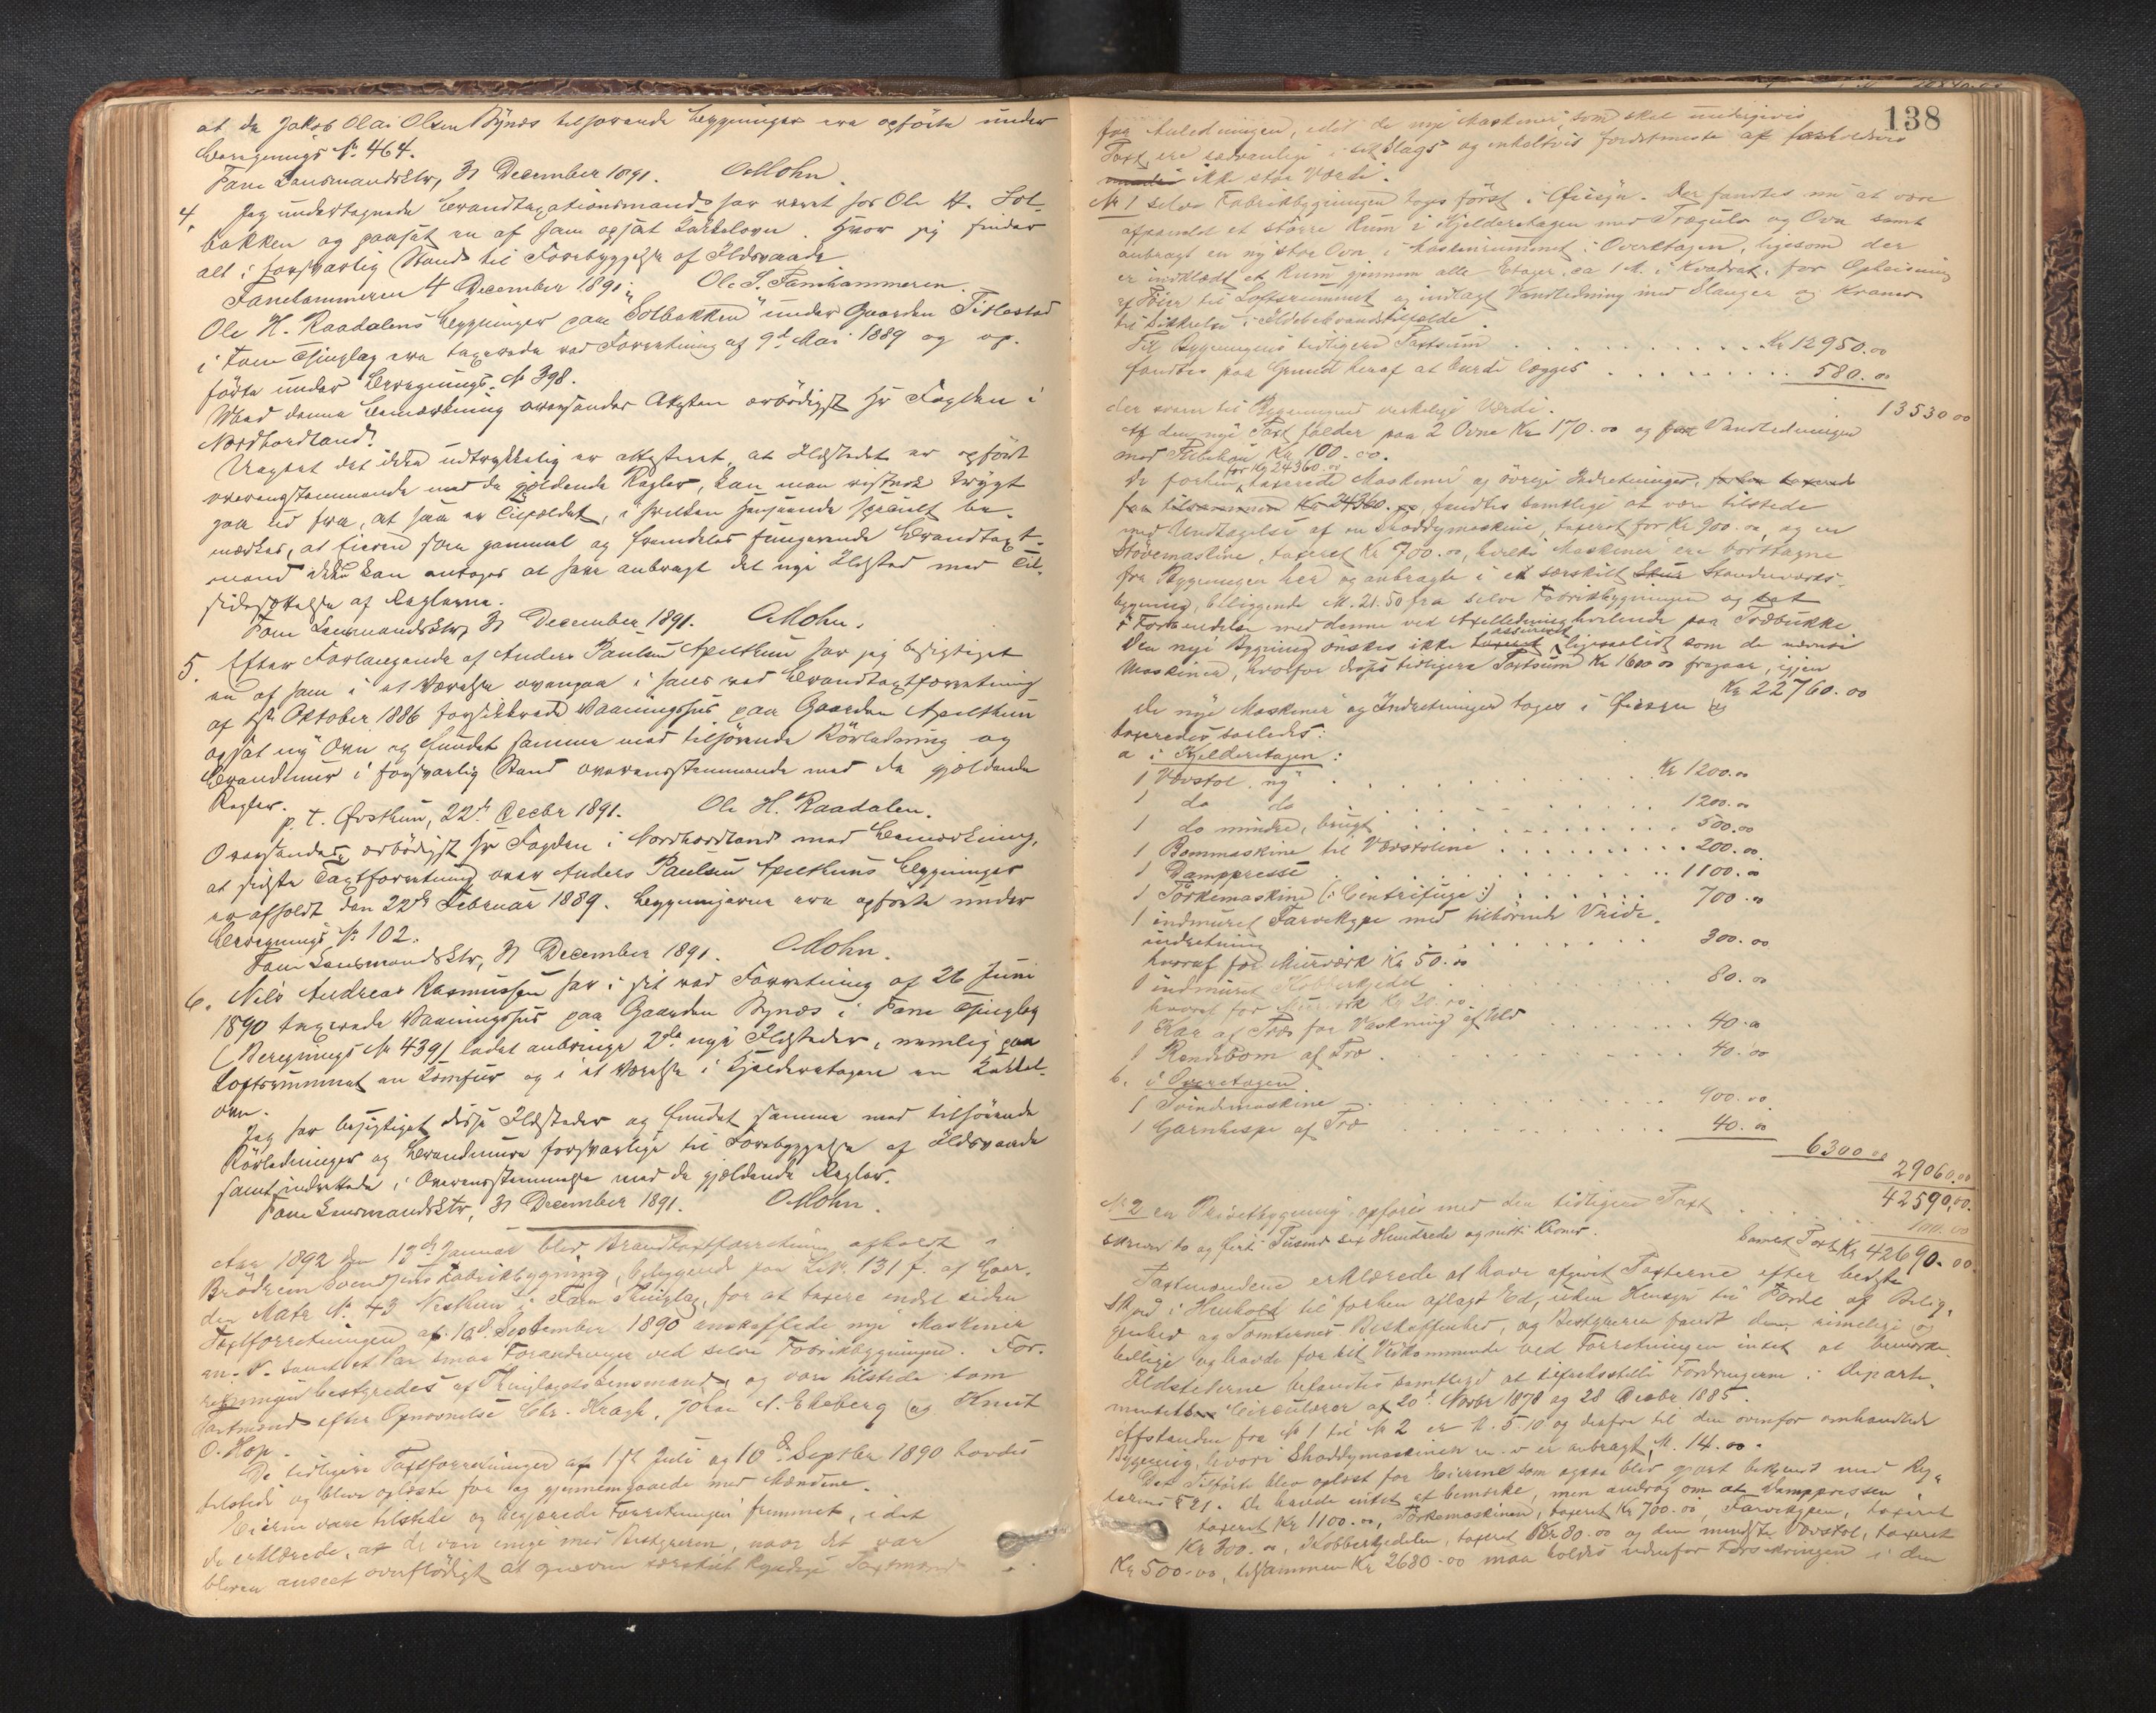 at de Jakob Olai Olsen Bynæs tilhørende Bygninger ere opførte under
Beregnings № 464.
Fane Lensmandsktr, 31 December 1891. OMohn.
4. Jeg undertegnede Brandtaxationsmand har været hos Ole H. Sol-
bakken og paaset en af ham opsat Kakkelovn. Hvor jeg finder
alt i forsvarlig Stand til Forebyggelse af Ildsvaade
Fanehammeren 4 December 1891. Ole S. Fanehammeren.
Ole H. Raadalens Bygninger paa "Solbakken" under Gaarden Titlestad
i Fane Thinglag ere taxerede ved Forretning af 9de Mai 1889 og op-
førte under Beregnings № 398.
Med denne Bemærkning oversendes Attesten ærbødigst Hr Fogden i
Nordhordland.
Uagtet det ikke udtrykkelig er attesteret, at Ildstedet er opført
overensstemmende med de gjældende Regler, kan man vistnok trygt
gaa ud fra, at saa er Tilfældet, i hvilken Henseende specielt be-
mærkes, at Eieren som gammel og fremdeles fungerende Brandtaxt-
mand ikke kan antages at have anbragt det nye Ildsted med Til-
sidesættelse af Reglerne.
Fane Lensmandsktr, 31 December 1891. OMohn.
5. Efter Forlangende af Anders Paulsen Apelthun har jeg besigtiget
en af ham i et Værelse ovenpaa i hans ved Brandtaxtforretning
af 1ste Oktober 1886 forsikkrede Vaaningshus paa Gaarden Apelthun
opsat ny Ovn og fundet samme med tilhørende Rørledning og
Brandmur i forsvarlig Stand overensstemmende med de gjældende
Regler.
p. t. Øvsthun, 22de Decbr 1891. Ole H. Raadalen.
Oversendes ærbødigst Hr Fogden i Nordhordland med Bemærkning,
at sidste Taxtforretning over Anders Paulsen Apelthuns Bygninger
er afholdt den 22de Februar 1889. Bygningerne ere opførte under
Beregnings № 102.
Fane Lensmandsktr, 31 December 1891. OMohn.
6. Nils Andreas Rasmussen har i sit ved Forretning af 26 Juni
1890 taxerede Vaaningshus paa Gaarden Bynæs i Fane Thinglag
(Beregnings № 439) ladet anbringe 2de nye Ildsteder, nemlig paa
Loftsrummet en Komfur og i et Værelse i Kjælderetagen en Kakkel-
ovn.
Jeg har besigtiget disse Ildsteder og fundet samme med tilhørende
Rørledninger og Brandmure forsvarlige til Forebyggelse af Ildsvaade
samt indrettede i Overensstemmelse med de gjældende Regler.
Fane Lensmandsktr, 31 December 1891. OMohn.
Aar 1892 den 12de Januar blev Brandtaxtforretning afholdt i
Brødrene Svendsens Fabrikbygning, beliggende paa L.№ 131 f. af Gaar-
den Matr № 43 Nesthun i Fane Thinglag, for at taxere endel siden
Taxtforretningen af 10de September 1890 anskaffede nye Maskiner
m. v. samt et Par smaa Forandringer ved selve Fabrikbygningen. For-
retningen bestyredes af Thinglagets Lensmand, og vare tilstede som
Taxtmænd efter Opnævnelse Chr. Kragh, Johan A. Ekeberg og Knut
O. Hop.
De tidligere Taxtforretninger af 1ste Juli og 10de Septbr 1890 havdes
tilstede og bleve oplæste for og gjennemgaaede med Mændene.
Eierne vare tilstede og begjærede Forretningen fremmet, idet
de erklærede, at de vare enige med Bestyreren, naar det var
bleven anseet overflødigt at opnævne særskilt kyndige Taxtmænd
138
for Anledningen, idet de nye Maskiner, som skal undergives
Taxt ere sædvanlige i sit Slags og enkeltvis fordetmeste af forholdsvis
ikke stor Værdi.
№ 1 selve Fabrikbygningen toges først i Øiesyn. Der fandtes nu at være
afpanelet et større Rum i Kjelderetagen med Trægulv og Ovn samt
anbragt en ny stor Ovn i Maskinrummet i Overetagen, ligesom der
er indklædt et Rum gjennem alle Etager, ca 1 M. i Kvadrat, for Opheisning
af Tøier til Loftsrummet og indlagt Vandledning med Slanger og Kraner
til Sikkelse i Ildebrandstilfælde.
Til Bygningens tidligere Taxtsum . . . Kr 12950.00
fandtes paa Grund heraf at burde lægges . . . 580.00
der svarer til Bygningens virkelige Værdi. 13530 00
Af den nye Taxt falder paa 2 Ovne Kr 170.00 og paa Vandledningen
med Tilbehør Kr 100.00.
De forhen for Kr 24360.00 taxerede Maskiner og øvrige Indretninger, forhen taxerede
for tilsammen Kr 24360.00, fandtes samtlige at være tilstede
med Undtagelse af en Shoddymaskine, taxeret for Kr 900.00, og en
Støvemaskine, taxeret Kr 700.00, hvilke Maskiner ere borttagne
fra Bygningen her og anbragte i et særskilt Skur Standværks-
bygning, beliggende M. 21.50 fra selve Fabrikbygningen og sat
i Forbindelse med denne ved Axelledning hvilende paa Træbukke
Den nye Bygning ønskes ikke taxeret assureret ligesaalidt som de nævnte
Maskiner, hvorfor deres tidligere Taxtsum Kr 1600.00 fragaar, igjen
Kr 22760.00
De nye Maskiner og Indretninger toges i Øiesyn og
taxeredes saaledes:
a i Kjelderetagen:
1 Vævstol ny . . . Kr 1200.00
1 do do . . . 1200.00
1 do mindre, brugt . . . 500.00
1 Bommaskine til Vævstolene . . . 200.00
1 Damppresse . . . 1100.00
1 Tørkemaskine (: Centrifuge :) . . . 700.00
1 indmuret Farvekype med tilhørende Vride-
indretning . . . 300.00
hvoraf for Murværk Kr 50.00
1 indmuret Kobberkjedel . . . 80.00
hvoraf for Murværk Kr 20.00
1 Kar af Træ for Vaskning af Uld . . . 40.00
1 Rendebom af Træ . . . 40.00
b. i Overetagen
1 Tvindemaskine . . . 900.00
1 Garnhespe af Træ . . . 40.00
6300 00
29060.00
42590,00.
№ 2 en Privetbygning opføres med den tidligere Taxt . . . 100.00
Samlet Taxt Kr 42690.00.
skriver to og firti Tusind sex Hundrede og nitti Kroner.
Taxtmændene erklærede at have afgivet Taxterne efter bedste
Skjøn i Henhold til forhen aflagt Ed, uden Hensyn til Fordel af Belig-
genhed og Tomternes Beskaffenhed, og Bestyreren fandt dem rimelige og
billige og havde for sit Vedkommende ved Forretningen intet at bemærke.
Ildstederne befandtes samtlige at tilfredsstille Fordringerne i Departe-
mentets Circulærer af 20de Novbr 1878 og 28 Decbr 1885.
Afstanden fra № 1 til № 2 er M. 5.10 og derfra til den ovenfor omhandlede
Bygning, hvori Shoddymaskinen m. v. er anbragt, M. 14.00.
Det Tilførte blev oplæst for Eierne som ogsaa blev gjort bekjendt med Lo-
vens § 21. De havde intet at bemærke, men androg om at Damppressen
taxeret Kr 1100.00, Tørkemaskinen, taxeret Kr 700.00, Farvekypen, taxeret
Kr 300.00, Kobberkjedelen, taxeret Kr 80.00 og den mindste Vævstol, taxeret
Kr 500.00, tilsammen Kr 2680.00 maa holdes udenfor Forsikringen i den